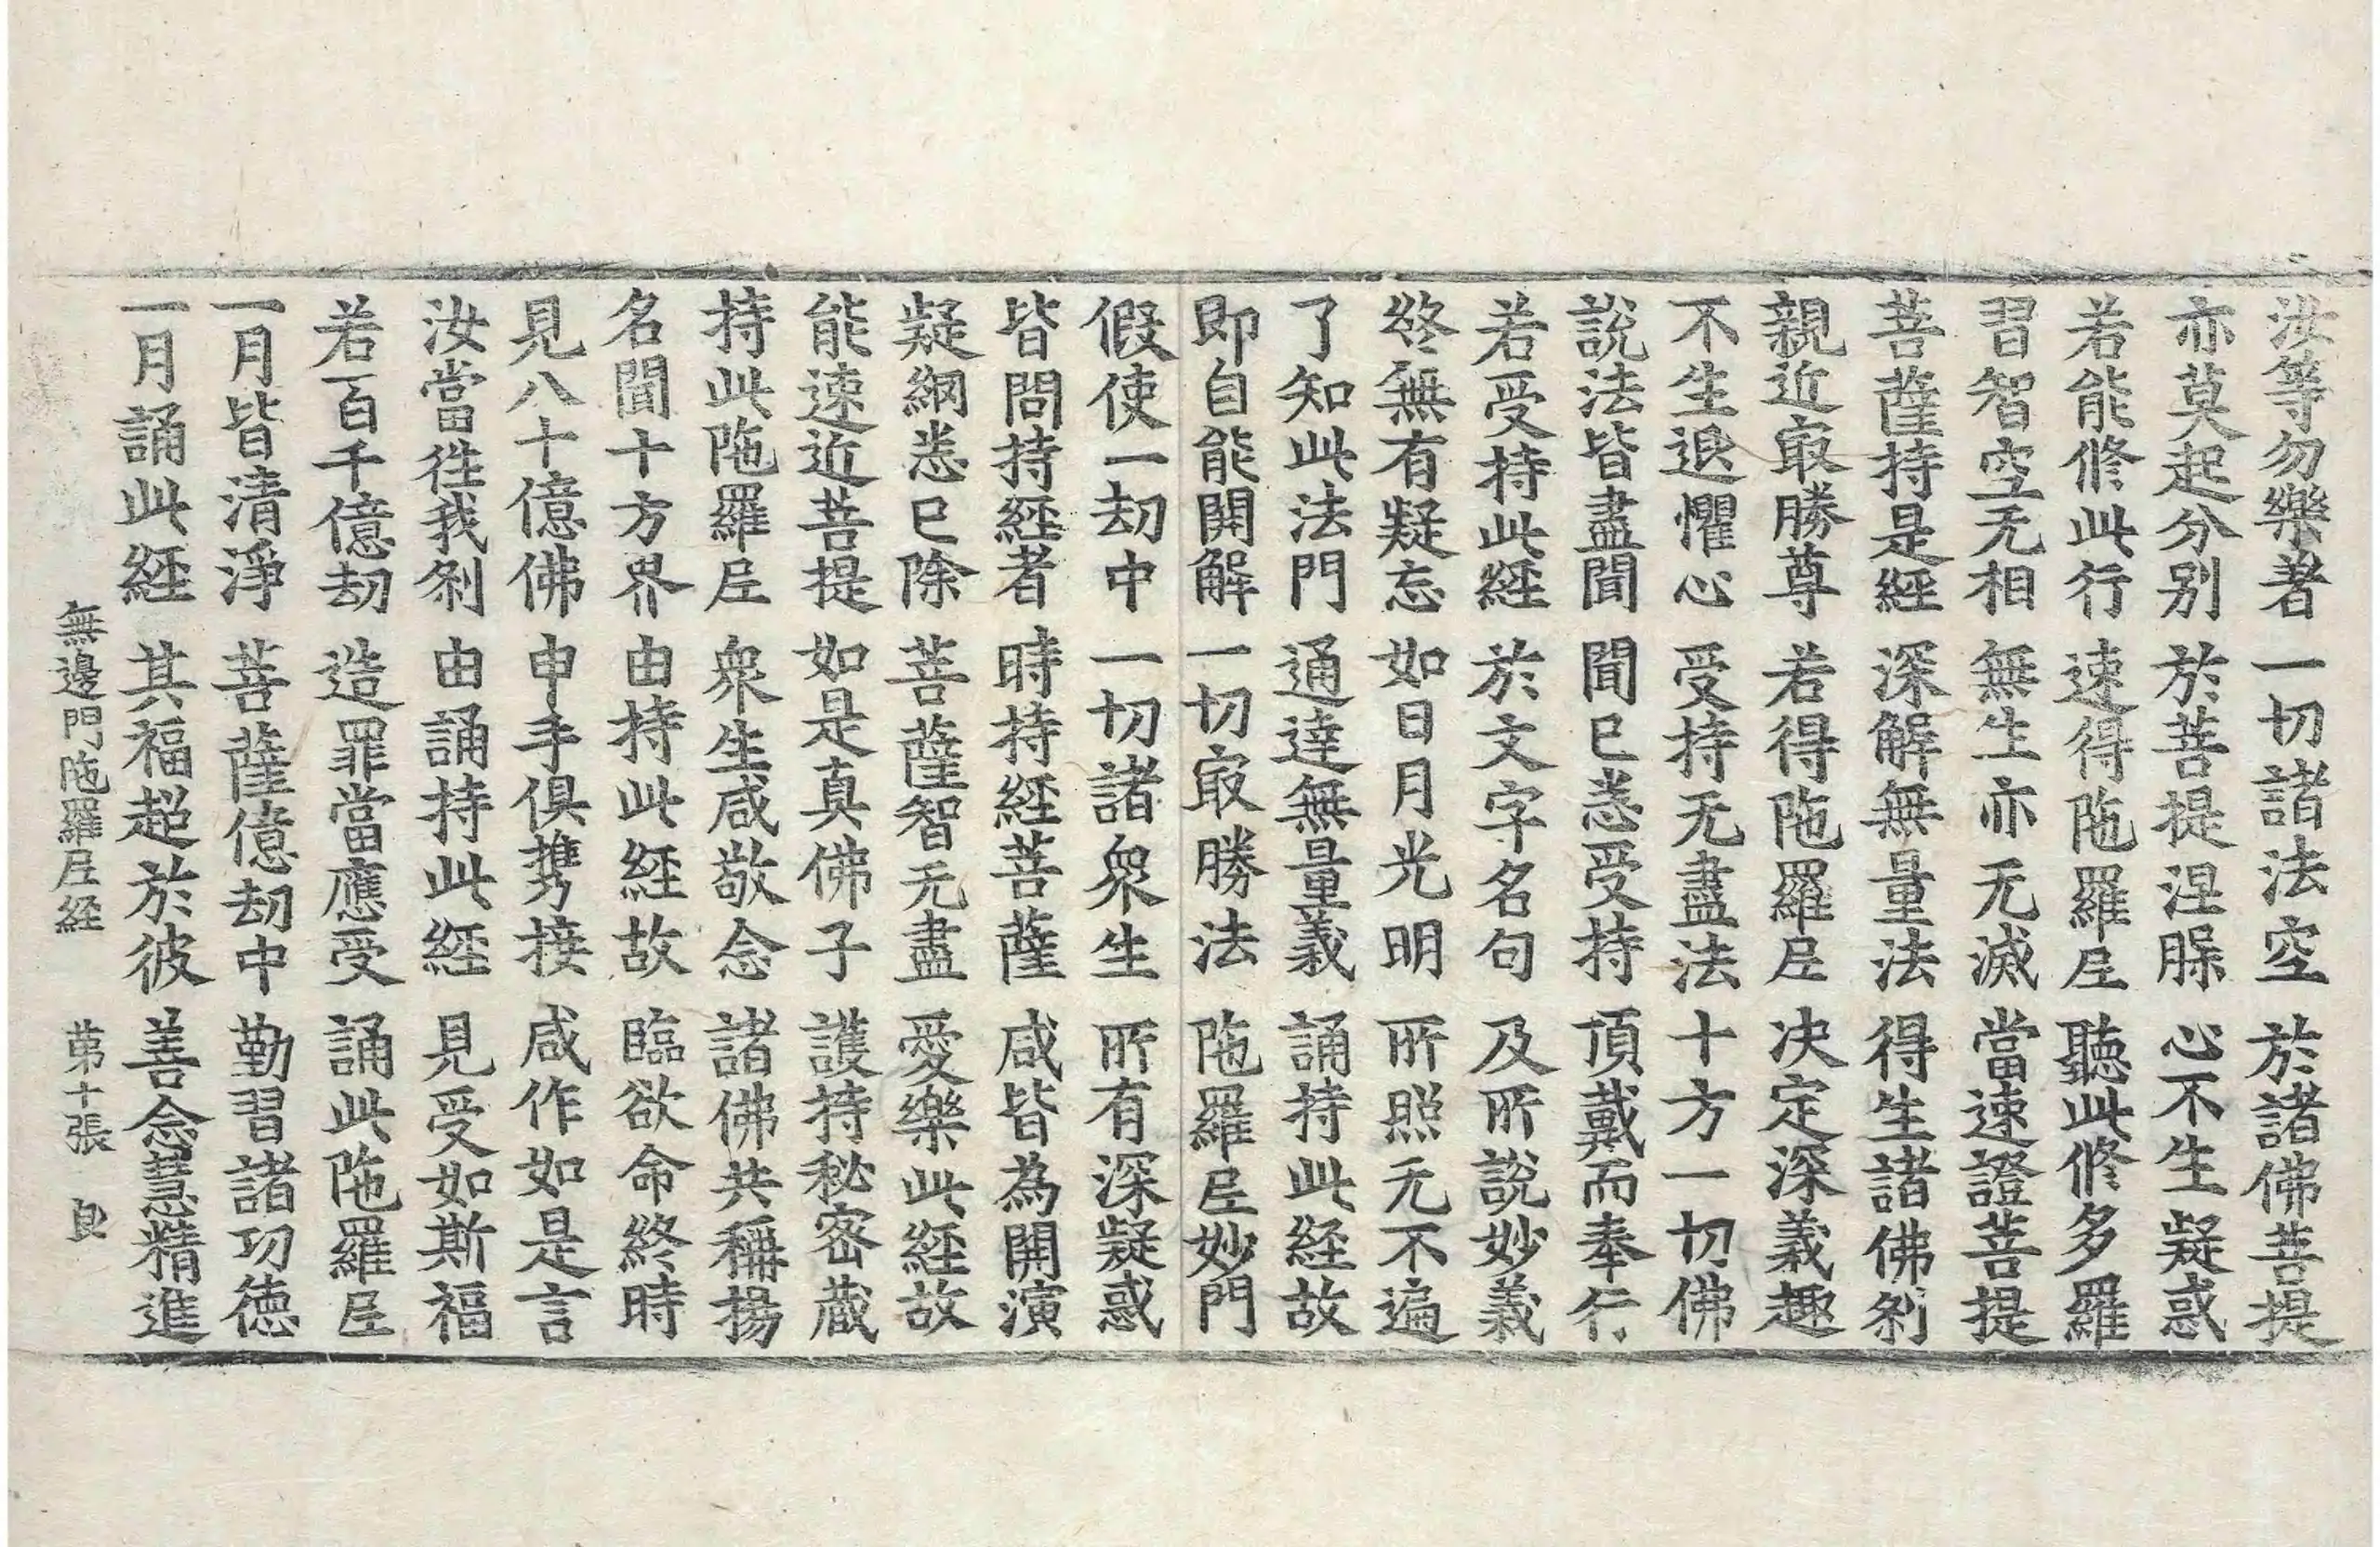 汝等勿樂著 一切諸法空 於諸佛菩提
亦莫起分别 於菩提涅槃 心不生疑惑
若能修此行 速得陁羅𡰱 聽此修多羅
習智空无相 無生亦无滅 當速證菩提
菩薩持是經 深解無量法 得生諸佛刹
親近㝡勝尊 若得陁羅𡰱 决定深義趣
不生退懼心 受持无盡法 十方一切佛
說法皆盡聞 聞已悉受持 頂戴而奉行
若受持此經 於文字名句 及所說妙義
終無有疑忘 如日月光明 所照无不遍
了知此法門 通達無量義 誦持此経故
即自能開解 一切㝡勝法 陁羅𡰱妙門
假使一劫中 一切諸衆生 所有深疑惑
皆問持經者 時持経菩薩 咸皆為開演
疑網悉已除 菩薩智无盡 愛樂此経故
能速近菩提 如是真佛子 護持秘密蔵
持此陁羅𡰱 衆生咸敬念 諸佛共稱揚
名聞十方界 由持此経故 臨欲命終時
見八十億佛 申手俱携接 咸作如是言
汝當徃我刹 由誦持此經 見受如斯福
若百千億劫 造罪當應受 誦此陁羅𡰱
一月皆清淨 菩薩億劫中 勤習諸功德
一月誦此経 其福超於彼 善念慧精進
無邊門陁羅𡰱経 苐十張